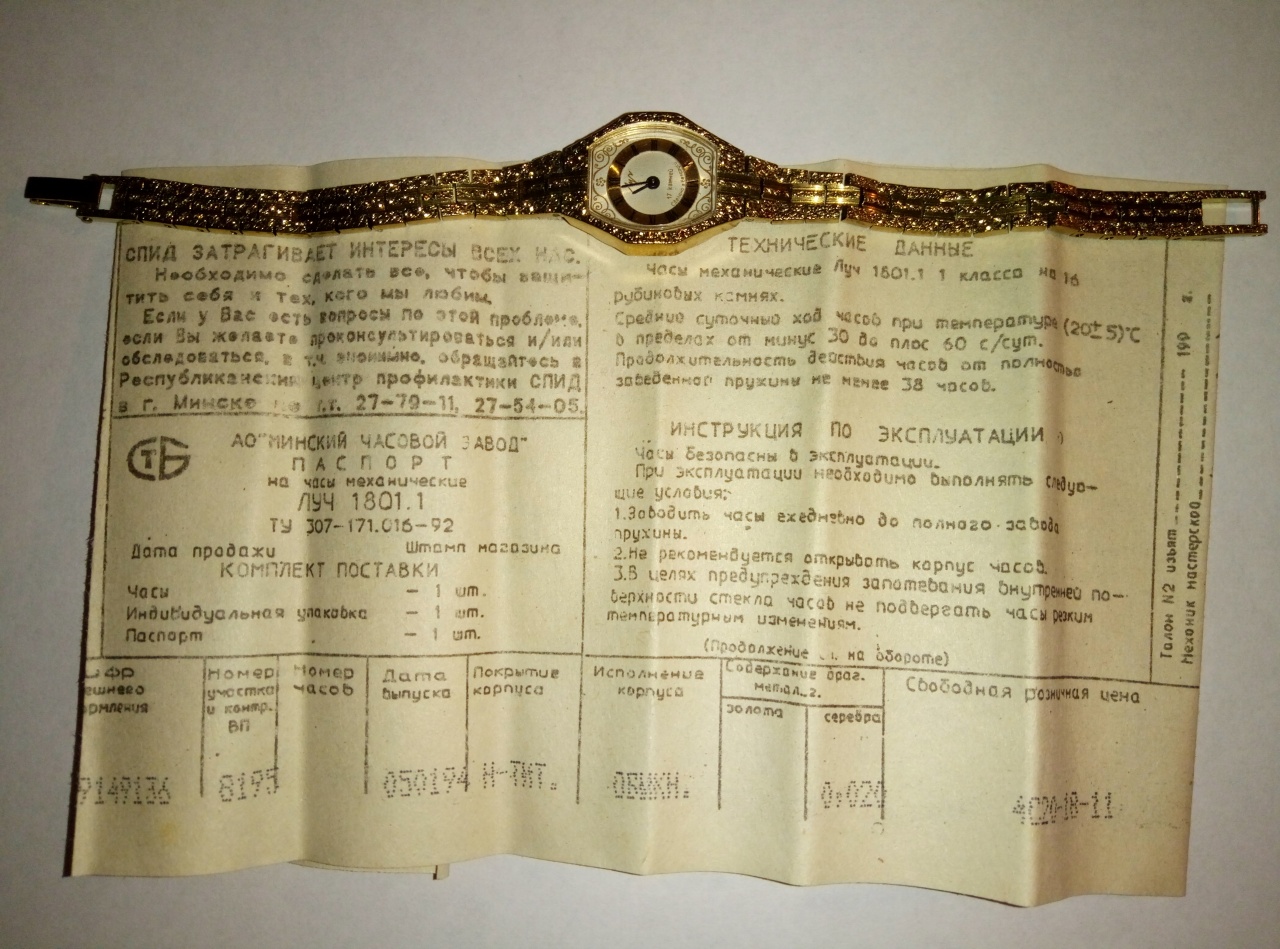 Луч
17 камней
СПИД ЗАТРАГИВАЕТ ИНТЕРЕСЫ ВСЕХ НАС.
Необходимо сделать все, чтобы защи-
тить себя и тех, кого мы любим.
Если у Вас есть вопросы по этой проблеме,
если Вы желаете проконсультироваться и/или
обследоваться, в т.ч. анонимно, обращайтесь в
Республиканский центр профилактики СПИД
в г. Минске по т.т. 27-79-11, 27-54-05.
СТБ
АО"МИНСКИЙ ЧАСОВОЙ ЗАВОД"
ПАСПОРТ
на часы механические
ЛУЧ 1801.1
ТУ 307-171.016-92
Дата продажи Штамп магазина
КОМПЛЕКТ ПОСТАВКИ
Часы – 1 шт.
Индивидуальная упаковка – 1 шт.
Паспорт – 1 шт.
ТЕХНИЧЕСКИЕ ДАННЫЕ
Часы механические Луч 1801.1 1 класса на 16
рубиновых камнях.
Средний суточный ход часов при температуре (20±5)°С
в пределах от минус 30 до плюс 60 с/сут.
Продолжительность действия часов от полностью
заведенной пружины не менее 38 часов.
ИНСТРУКЦИЯ ПО ЭКСПЛУАТАЦИИ
Часы безопасны в эксплуатации.
При эксплуатации необходимо выполнять следую-
щие условия:
1.Заводить часы ежедневно до полного завода
пружины.
2.Не рекомендуется открывать корпус часов.
3.В целях предупреждения запотевания внутренней по-
верхности стекла часов не подвергать часы резким
температурным изменениям.
(Продолжение на обороте)
Талон N2 изъят 199 г.
Механик мастерской
шифр
внешнего
оформления
Номер
участка
и контр.
ВП
Номер
часов
Дата
выпуска
Покрытие
корпуса
Исполнение
корпуса
Содержание драг.
метал. г.
золота
серебра
Свободная розничная цена
9149136 8195 050194 Н-ТИТ. ОБЫКН. 0,020 4С20-18-11